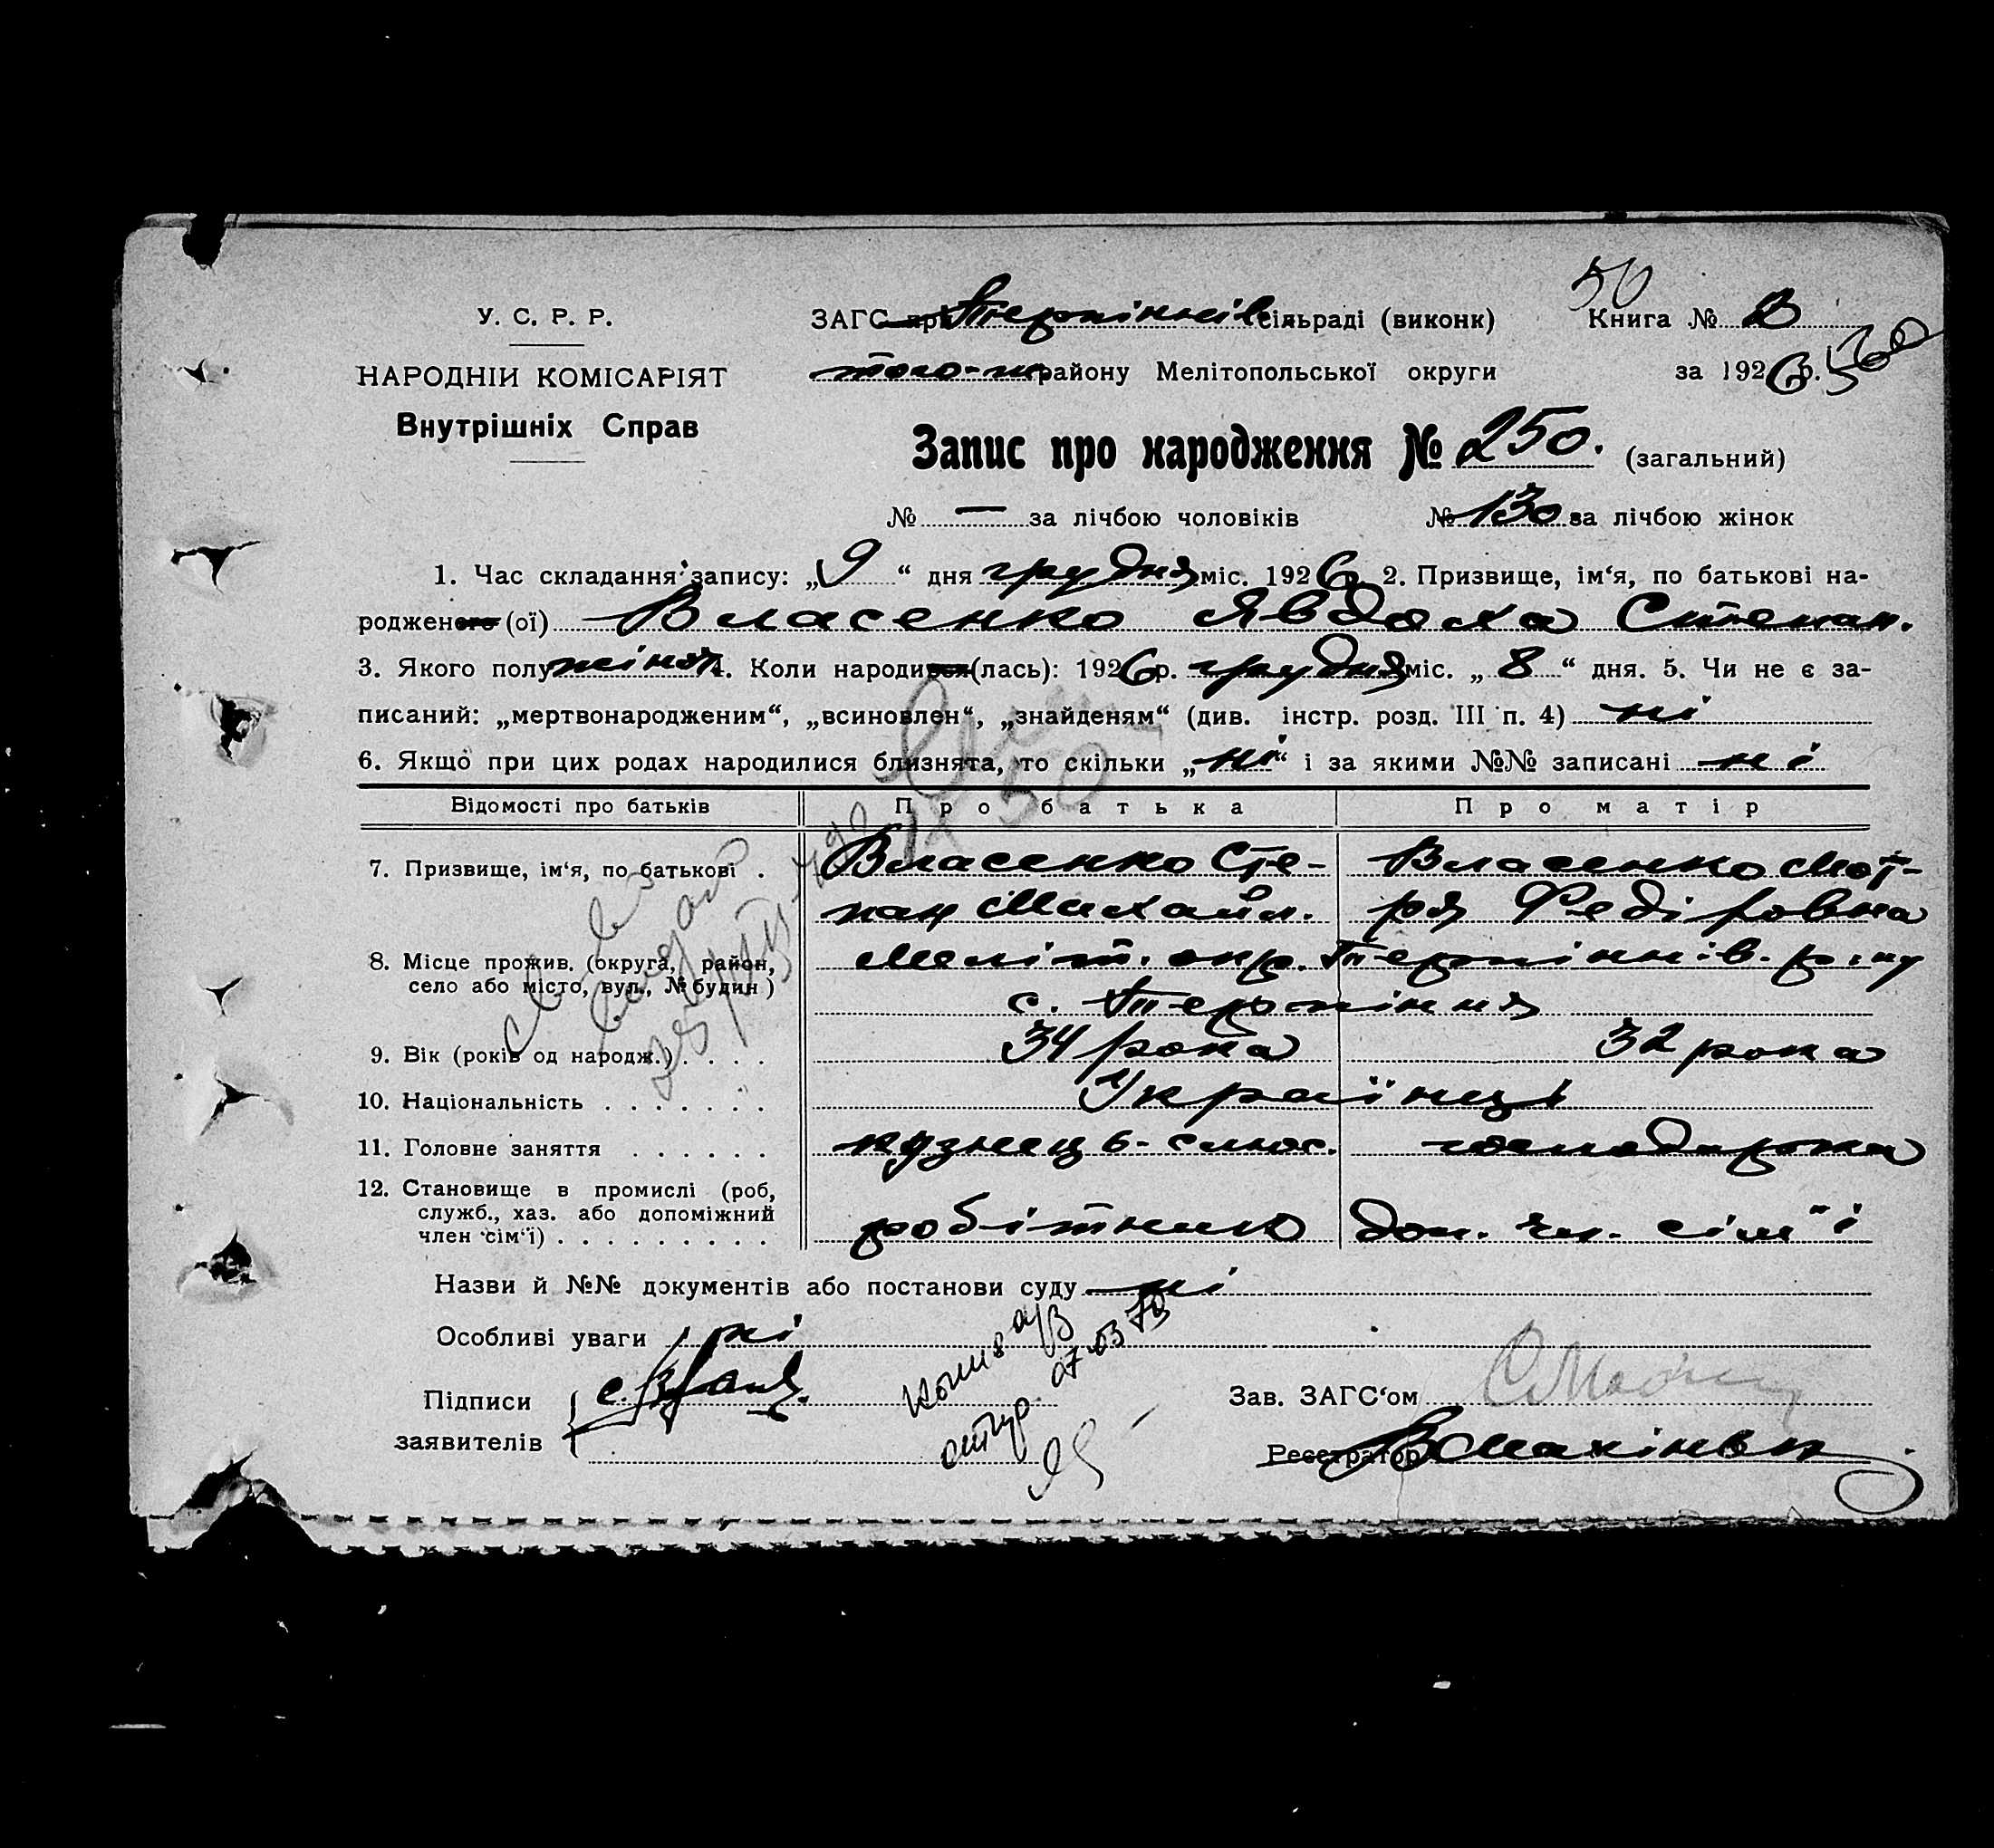 50
У. С. Р. Р. ЗАГС при Терпіннів. сільраді (виконк) Книга № 2
НАРОДНІЙ КОМІСАРІЯТ того-ж району Мелітопольської округи за 1926 р. 560
Внутрішніх Справ
Запис про народження № 250. (загальний)
№ — за лічбою чоловіків № 130 за лічбою жінок
1. Час складання запису: „9“ дня грудня міс. 1926 2. Призвище, ім‘я, по батькові на-
родженого (ої) Власенко Явдоха Степан.
3. Якого полу жіноч. 4. Коли народився (лась): 1926 р. грудня міс. „8“ дня. 5. Чи не є за-
писаний: „мертвонародженим“, „всиновлен“, „знайденям“ (див. інстр. розд. III п. 4) ні
6. Якщо при цих родах народилися близнята, то скільки „ні“ і за якими №№ записані ні
Відомості про батьків Про батька Про матір
7. Призвище, ім‘я, по батькові . Власенко Сте- Власенко Мот-
пан Михайл. ря Федіровна
8. Місце прожив. (округа, район, Меліт. окр. Терпіннів. р-ну
село або місто, вул., № будин) с. Терпіння
9. Вік (років од народж.) . . . . 34 рока 32 рока
10. Національність . . . . . . . Українці
11. Головне заняття . . . . . . кузнець-слюс. господарка
12. Становище в промислі (роб,
служб., хаз. або допоміжний
член сім‘ї) . . . . . . . . . робітник доп. чл. сім"ї
Назви й №№ документів або постанови суду ні
Особливі уваги ні
07-03
Підписи Зав. ЗАГС‘ом
заявителів Реєстратор